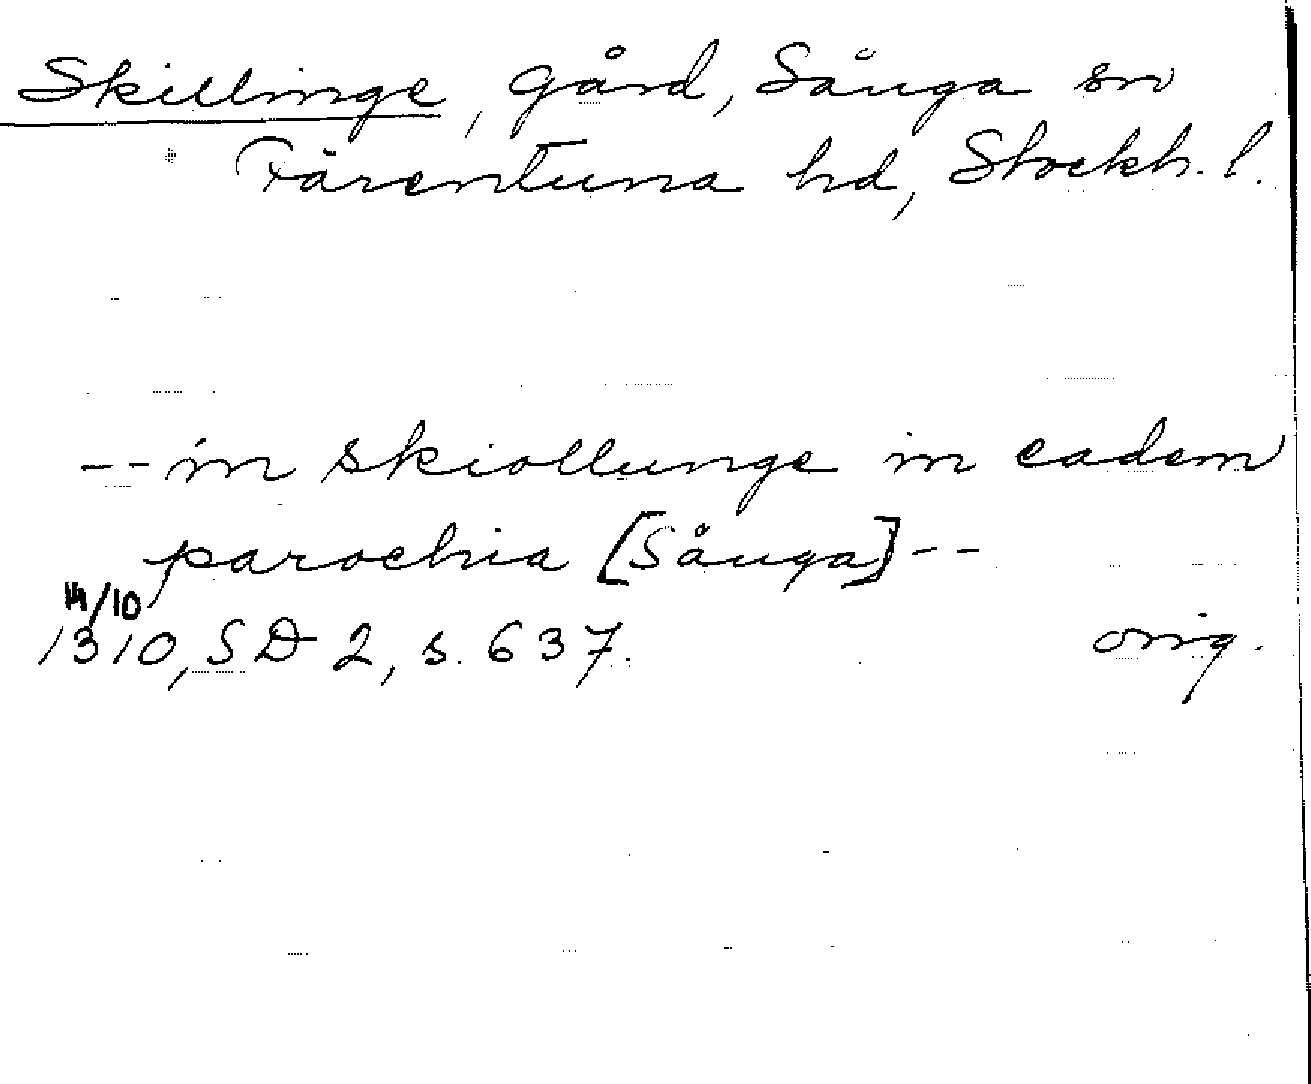 Skillinge, gård, Sånga sn
Färentuna hd, Stockh. l.
-- in skiollunge in eadem
parochia [Sånga] --
14/10
1310, SD 2, s. 637. orig.